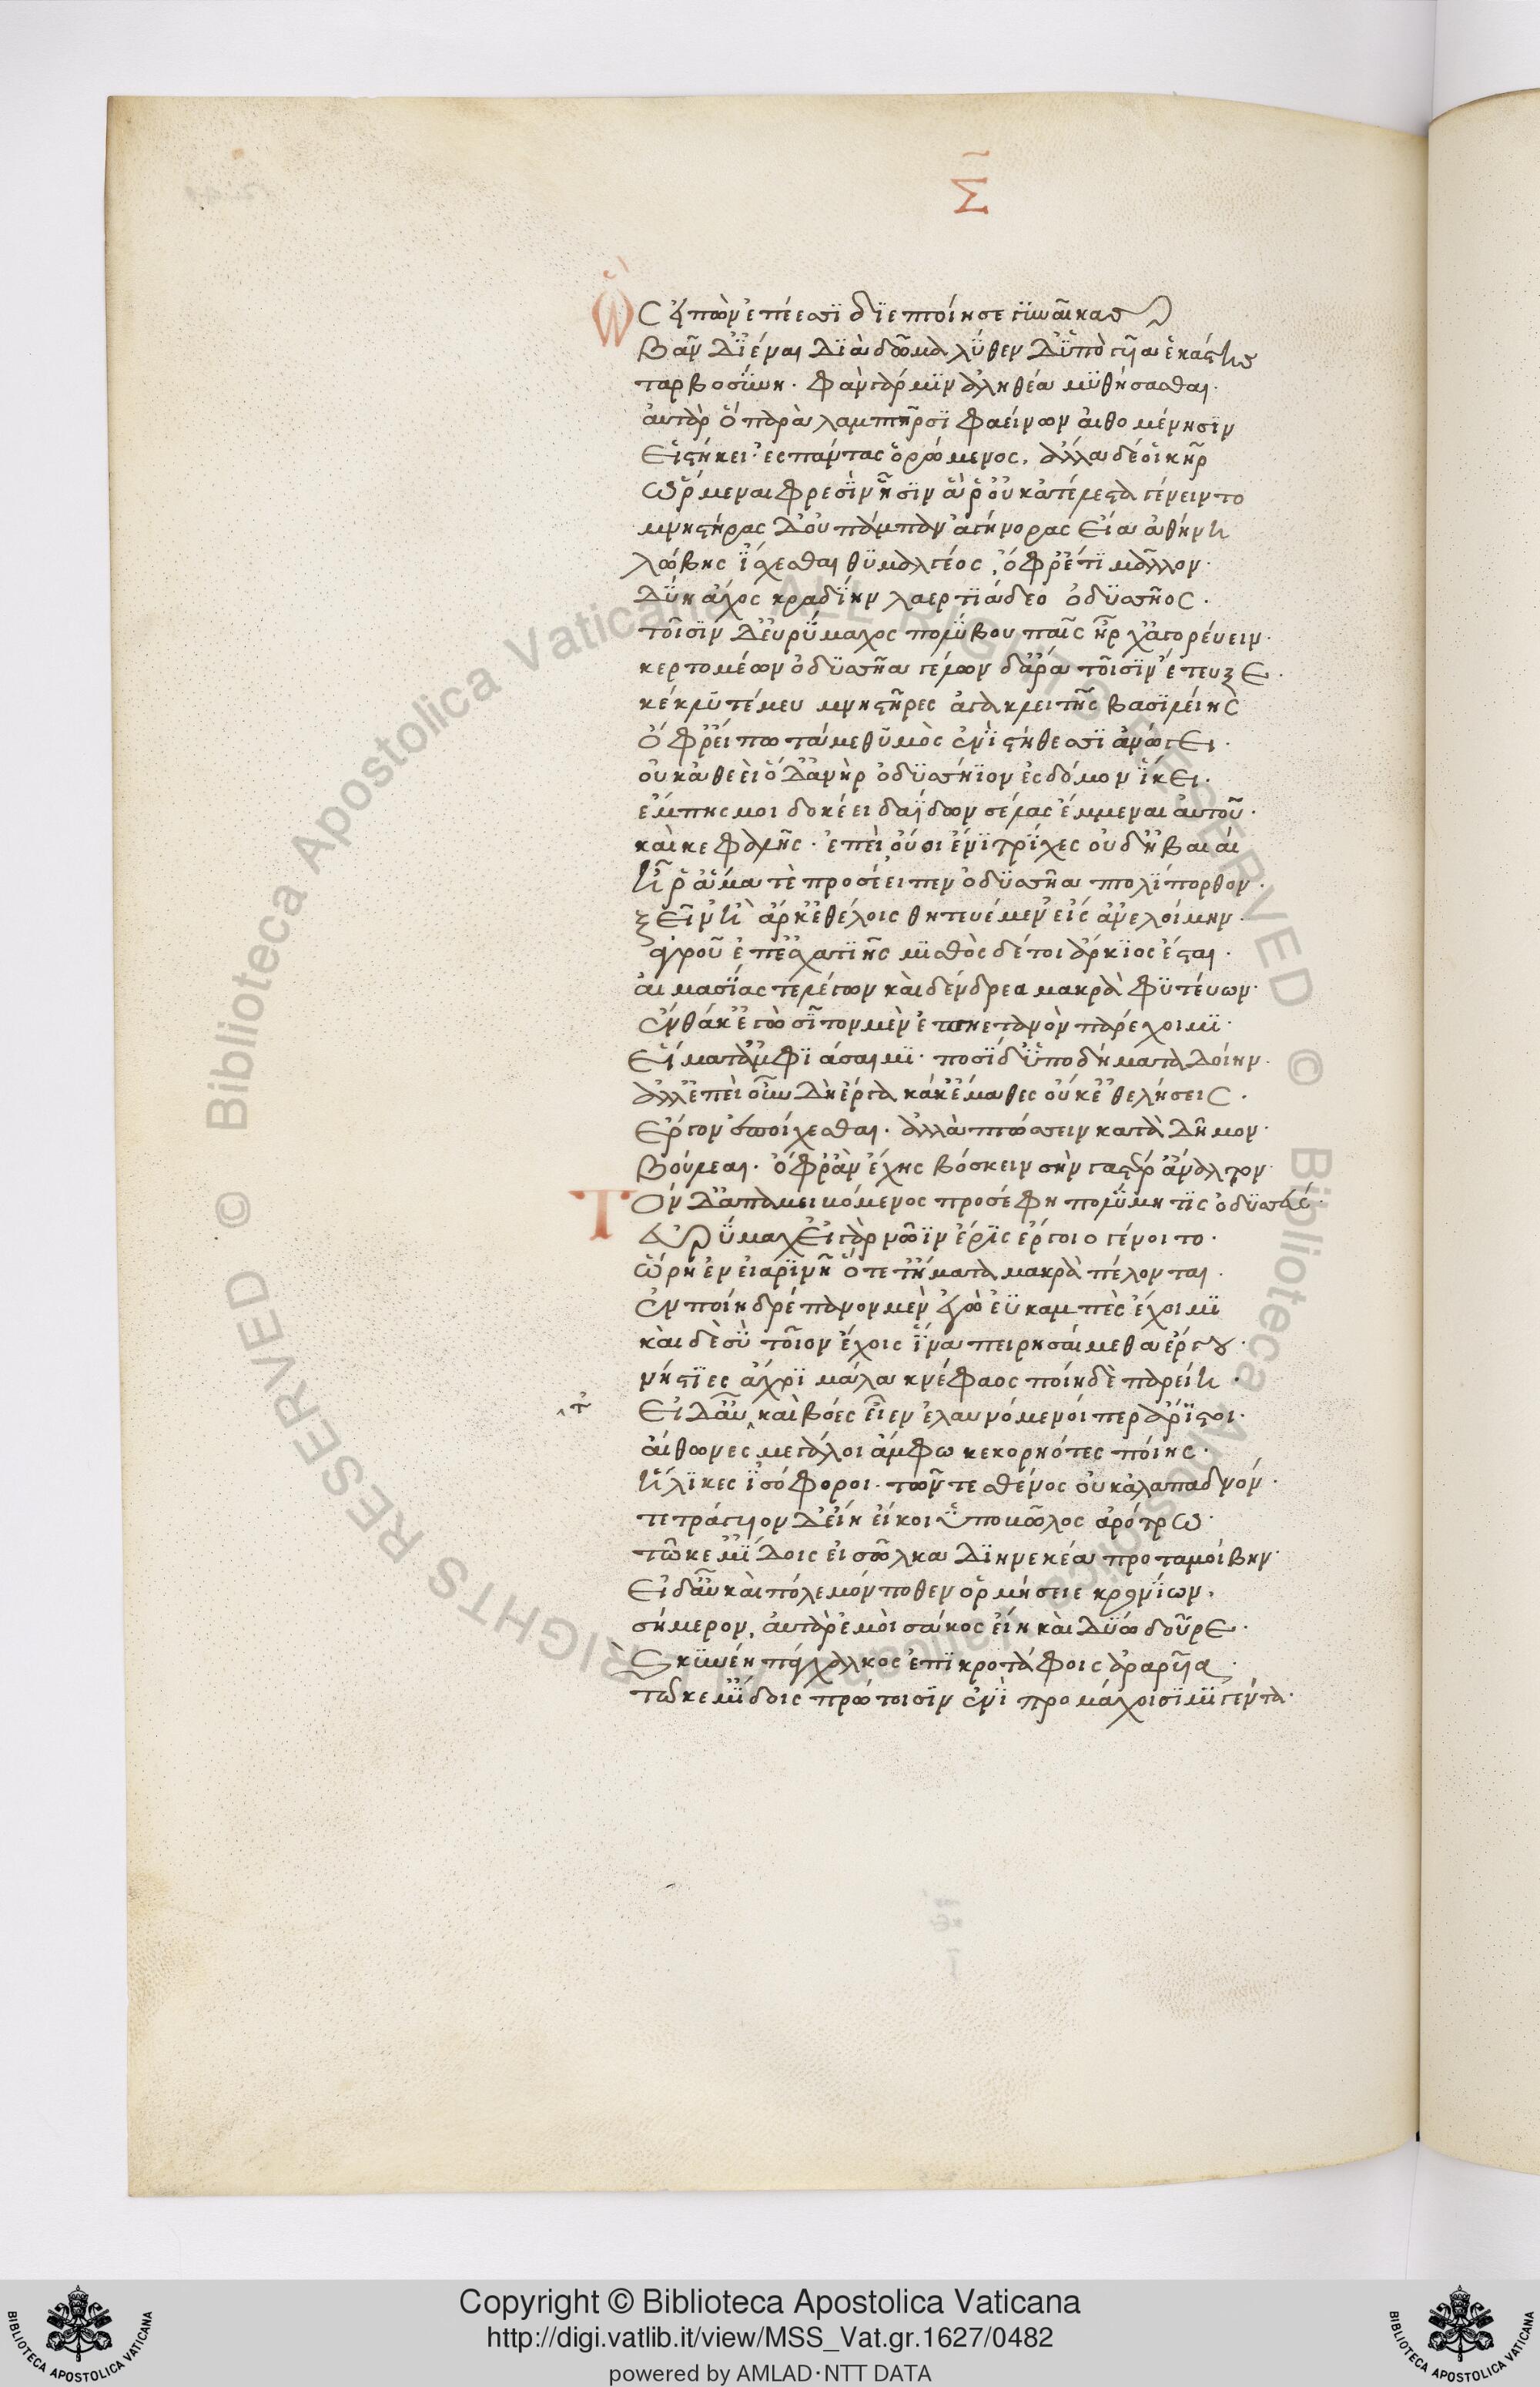 Σ
Ὣς εἰπὼν ἐπέεσσι διεποίησε γυναῖκας
Βὰν δ' ἰέναι διὰ δῶμα λύθεν δ' ὑπὸ γυῖα ἑκάστης
ταρβοσύνη· φὰν γάρ μιν ἀληθέα μυθήσασθαι·
αὐτὰρ ὁ πὰρ λαμπτῆρσι φαείνων αἰθομένῃσιν
Εἱστήκει ἐς πάντας ὁρώμενος. ἄλλα δέ οἱ κῆρ
Ὥρμαινε φρεσὶν ᾗσιν ἅ ῥ' οὐκ ἀτέλεστα γένοιντο
μνηστῆρας δ' οὐ πάμπαν ἀγήνορας εἴα ἀθήνη
λώβης ἴσχεσθαι θυμαλγέος, ὄφρ' ἔτι μᾶλλον·
Δύη ἄχος κραδίην λαερτιάδεο ὀδυσσῆος·
τοῖσιν δ' εὐρύμαχος πολύβου παῖς ἦρχ' ἀγορεύειν·
κερτομέων ὀδυσσῆα γέλων δ' ἄρα τοῖσιν ἔτευξε·
κέκλυτέ μευ μνηστῆρες ἀγακλειτῆς βασιλείης
Ὄφρ' εἴπω τά με θυμὸς ἐνὶ στήθεσσι ἀνώγει·
οὐκ ἀθεεὶ ὅδ' ἀνὴρ ὀδυσήϊον ἐς δόμον ἵκει·
ἔμπης μοι δοκέει δαΐδων σέλας ἔμμεναι αὐτοῦ·
καὶ κεφαλῆς· ἐπεὶ οὔ οἱ ἔνι τρίχες οὐδ' ἠβαιαί
Ἦ ῥ' ἅμα τὲ προσέειπεν ὀδυσσῆα πτολίπορθον·
ξεῖν' ἦ ἄρ κ' ἐθέλοις θητευέμεν εἴ σ' ἀνελοίμην·
ἀγροῦ ἐπ' ἐσχατιῆς μισθὸς δέ τοι ἄρκιος ἔσται·
αἱμασίας τε λέγων καὶ δένδρεα μακρὰ φυτεύων·
ἔνθα κ' ἐγὼ σῖτον μὲν ἐπηετανὸν παρέχοιμι·
Εἵματα δ' ἀμφιάσαιμι· ποσὶ δ' ὑποδήματα δοίην·
ἀλλ' ἐπεὶ οὖν δὴ ἔργα κάκ' ἔμαθες οὐκ ἐθελήσεις·
Ἔργον ἐποίχεσθαι· ἀλλὰ πτώσσειν κατὰ δῆμον·
Βούλεαι· ὄφρ' ἂν ἔχῃς βόσκειν σὴν γαστέρ' ἄναλτον·
Τὸν δ' ἀπαμειβόμενος προσέφη πολύμητις ὀδυσσεύς·
Εὐρύμαχ' εἰ γὰρ νῶϊν ἔρις ἔργοιο γένοιτο·
ὥρῃ ἐν εἰαρινῇ ὅτε τ' ἤματα μακρὰ πέλονται·
ἐν ποίῃ δρέπανον μὲν ἐγὼ εὐκαμπὲς ἔχοιμι
καὶ δὲ σὺ τοῖον ἔχοις ἵνα πειρησαίμεθα ἔργου·
νήστιες ἄχρι μάλα κνέφαος ποίη δὲ παρείη·
Εἰ δ' αὖ καὶ βόες εἶεν ἐλαυνόμενοί περ ἄριστοι·
τ'
αἴθωνες μεγάλοι ἄμφω κεκορηότες ποίης·
ἥλικες ἰσόφοροι· τῶν τε σθένος οὐκ ἀλαπαδνόν·
τετράγυον δ' εἴη εἴκοι δ' ὑπὸ βῶλος ἀρότρῳ·
τῷ κέ μ' ἴδοις εἰ σῶλκα διηνεκέα προταμοίβην·
Εἰ δ' αὖ καὶ πόλεμόν ποθεν ὁρμήσειε κρονίων·
σήμερον, αὐτὰρ ἐμοὶ σάκος εἴη καὶ δύω δοῦρε·
καὶ κυνέη πάγχαλκος ἐπὶ κροτάφοις ἀραρυῖα·
τῷ κέ μ' ἴδοις πρώτοισιν ἐνὶ προμάχοισι μιγέντα·
Copyright © Biblioteca Apostolica Vaticana
http://digi.vatlib.it/view/MSS_Vat.gr.1627/0482
powered by AMLAD·NTT DATA